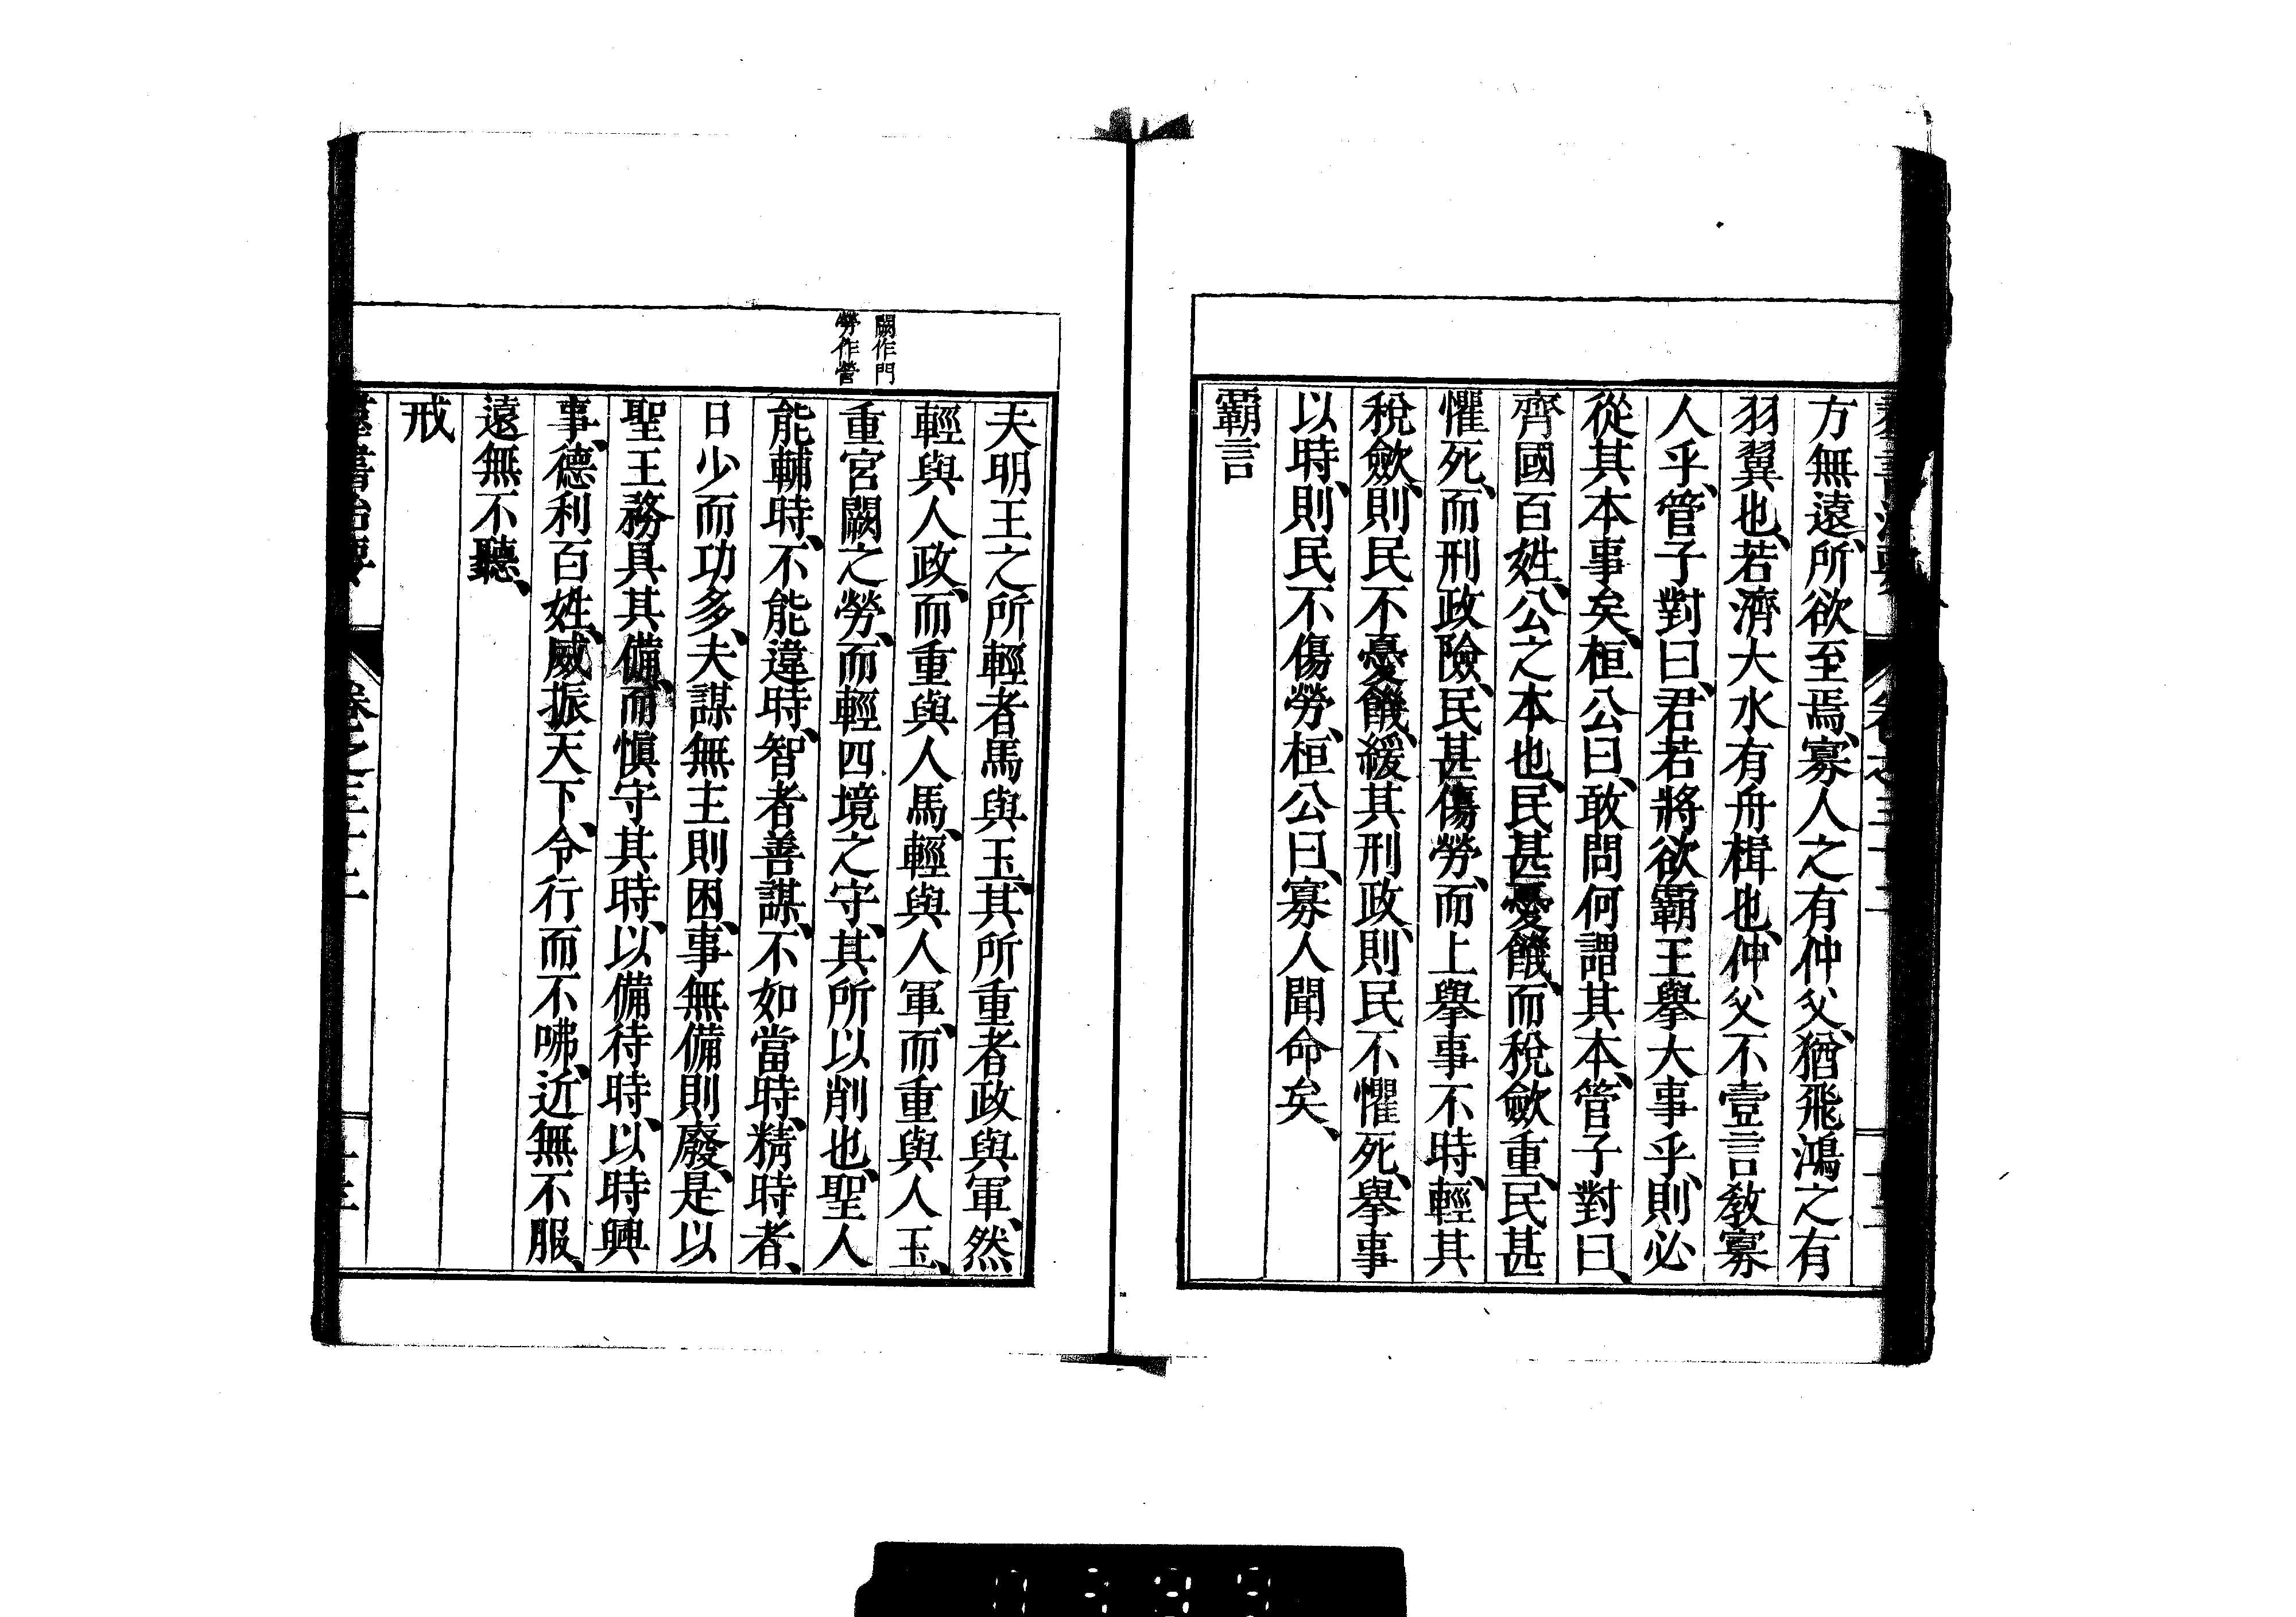 方無遠、所欲至焉、寡人之有仲父、猶飛鴻之有
羽翼也、若濟大水有舟楫也、仲父不壹言教寡
人乎、管子對曰、君若將欲霸王舉大事乎、則必
從其本事矣、桓公曰、敢問何謂其本、管子對曰、
齊國百姓、公之本也、民甚憂饑、而稅斂重、民甚
懼死、而刑政險、民甚傷勞、而上舉事不時、輕其
稅斂、則民不憂饑、緩其刑政、則民不懼死、舉事
以時、則民不傷勞、桓公曰、寡人聞命矣、
霸言
闕作門
勞作營
夫明王之所輕者馬與玉、其所重者政與軍、然
輕與人政、而重與人馬、輕與人軍、而重與人玉、
重宮闕之勞、而輕四境之守、其所以削也、聖人
能輔時、不能違時、智者善謀、不如當時、精時者、
日少而功多、夫謀無主則困、事無備則廢、是以
聖王務具其備、而慎守其時、以備待時、以時興
事、德利百姓、威振天下、令行而不咈、近無不服、
遠無不聽、
戒